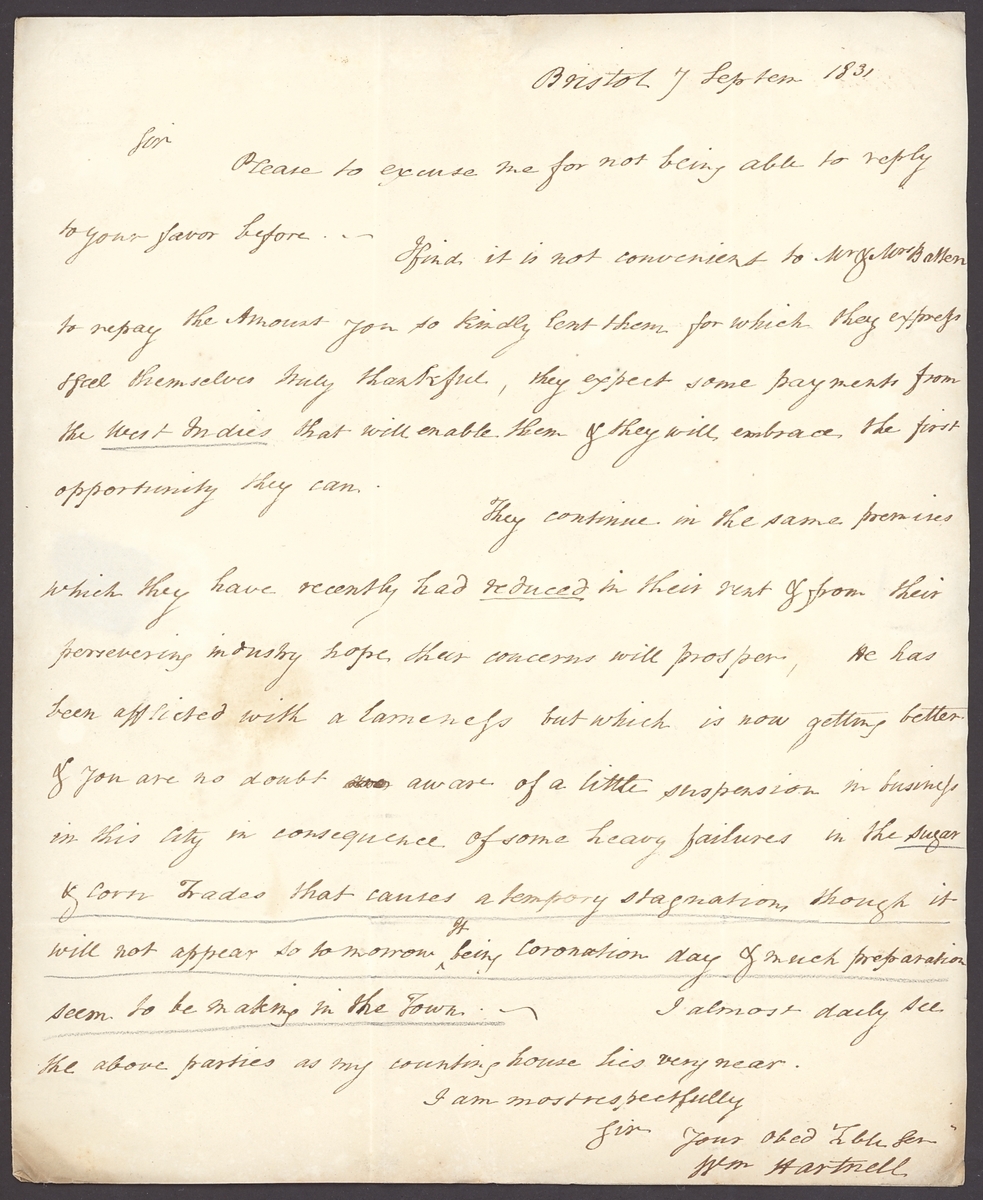 Bristol 7 Septem 1831
Sir
Please to excuse me for not being able to reply
to your favor before. —
I find it is not convenient to Mr & Mrs Batten
to repay the Amount you so kindly lent them for which they express
& feel themselves truly thankful, they expect some payments from
the West Indies that will enable them & they will embrace the first
opportunity they can.
They continue in the same premises
which they have recently had reduced in their rent & from their
persevering industry hope their concerns will prosper, He has
been afflicted with a lameness but which is now getting better
& you are no doubt aware of a little suspension in business
in this City in consequence of some heavy failures in the sugar
& Corn Trades that causes a tempory stagnation, though it
will not appear so to morrow It being Coronation day & much preparation
seem to be making in the Town. — I almost daily see
the above parties as my counting house lies very near.
I am most respectfully
Sir Your Obed Hble Ser
Wm Hartnell